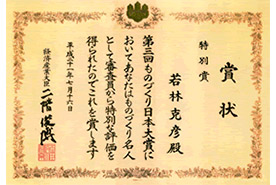 賞状
特別賞
若林克彦殿
第三回ものづくり日本大賞に
おいてあなたはものづくり名人
として審査員から特別な評価を
得られたのでこれを賞します
平成二十一年七月十六日
経済産業大臣
二階俊博